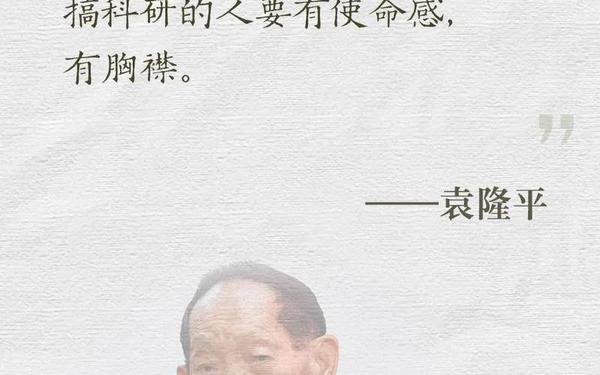 搞科研的人要有使命感，
有胸襟。
”
——袁隆平